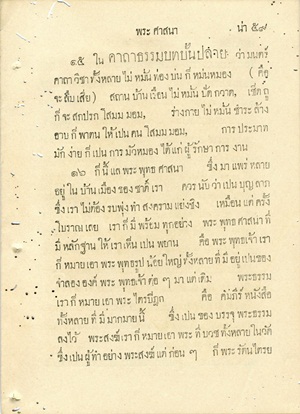 พระ ศาสนา น่า ๕๗
๑๕ ใน คาถาธรรมบทบั้นปลาย ว่า มนตร์
คาถา วิชา ทั้งหลาย ไม่ หมั่น ท่อง บ่น ก็ หม่นหมอง ( คือ
จะ ลืม เสีย ) สถาน บ้าน เรือน ไม่ หมั่น ปัด กวาด,
ก็ จะ สกปรก โสมม มอม, ร่างกาย ไม่ หมั่น ชำระ ล้าง
อาบ ก็ พาตน ให้ เปน คน โสมม มอม, การ ประมาท
มัก ง่าย ก็ เปน การ มัวหมอง ได้ แก่ ผู้ รักษา การ งาน
๑๖ ก็ นี้ แล พระ พุทธ ศาสนา ซึ่ง มา แพร่ หลาย
อยู่ ใน บ้าน เมือง ของ ชาติ เรา ควร นับ ว่า เปน บุญ ลาภ
ซึ่ง เรา ไม่ต้อง รบพุ่ง ทำ สงคราม แย่งชิง เหมือน แต่ ครั้ง
โบราณ เลย เรา ก็ มี พร้อม ทุกอย่าง พระ พุทธ ศาสนา ที่
มี หลักฐาน ให้ เรา เห็น เปน พยาน คือ พระ พุทธเจ้า เรา
ก็ หมาย เอา พระ พุทธรูป น้อย ใหญ่ ทั้งหลาย ที่ มี อยู่ เปนของ
จำลอง องค์ พระ พุทธเจ้า ต่อ ๆ มา แต่ เดิม พระธรรม
เรา ก็ หมาย เอา พระ ไตรปิฎก คือ คัมภีร์ หนังสือ
ทั้งหลาย ที่ มี มากมาย นี้ ซึ่ง เปน ของ บรรจุ พระธรรม
ลงไว้ พระสงฆ์ เรา ก็ หมาย เอา พระ ที่ บวช ทั้งหลาย ในวัดี
ซึ่ง เปน ผู้ ทำ อย่าง พระสงฆ์ แต่ ก่อน ๆ ก็ พระ รัตนไตรย